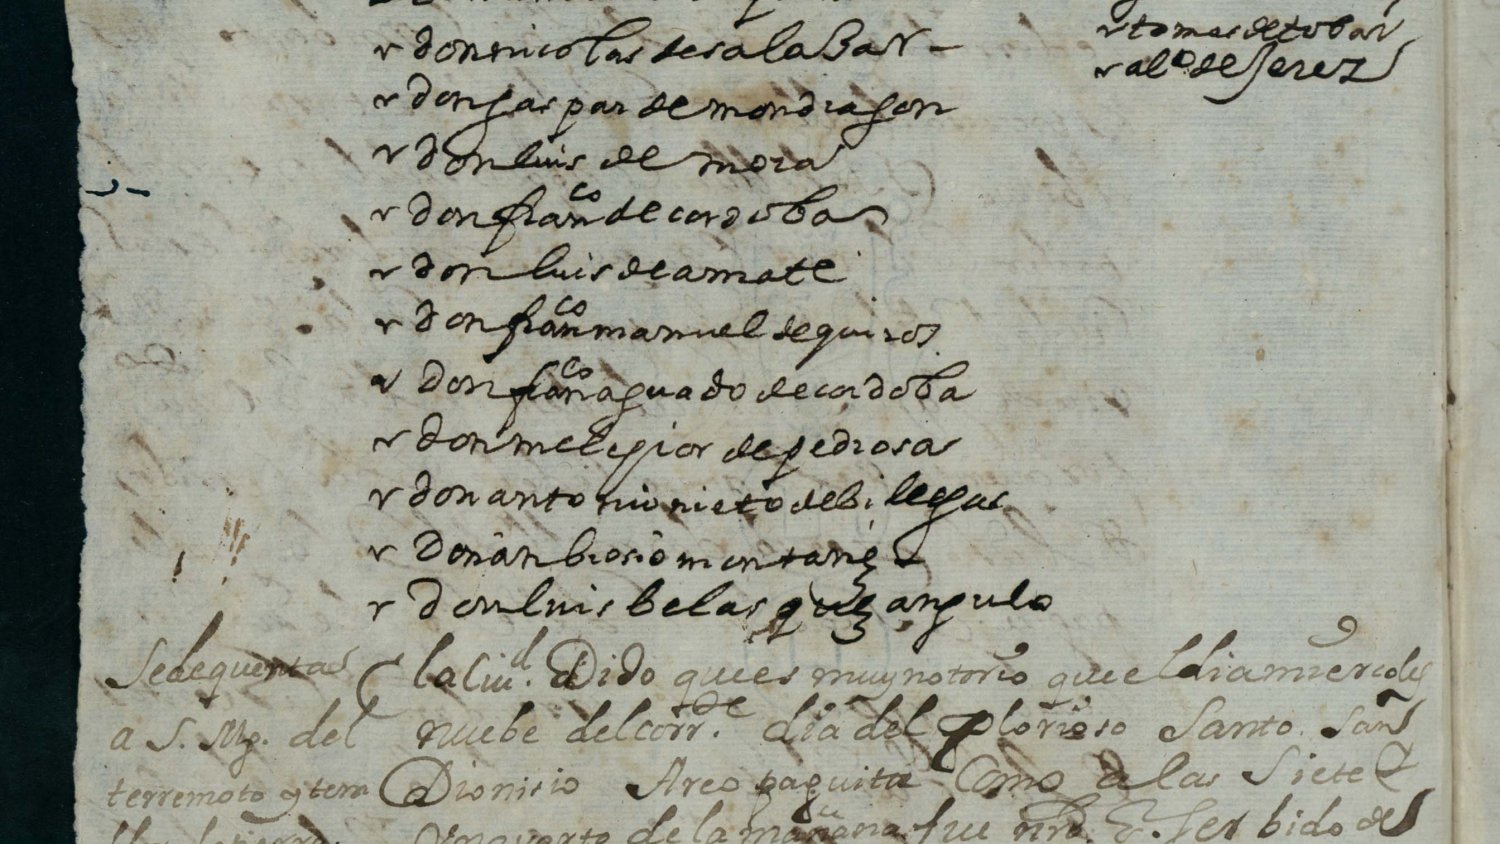 don nicolas de salaBar
don gaspar de mondragon
don luis de mora
don fran.co de cordoba
don luis de amate
don fran.co manuel de quiros
don fran.co aguado de cordoba
don melchor de pedrosa
don antonio nieto de billegas
don anbrosio montañez
don luis belasquez angulo
tomas de tobar
al.o de Jerez
Se de quenta
a S. Mg. del
terremoto y tem
la Ciu.d Dido que es muy notorio que el dia miercoles
nuebe del corr.de dia del glorioso Santo San
Dionisio Areopaguita Como a las Siete
quarto de la mañana fue nro. S.r Serbido de